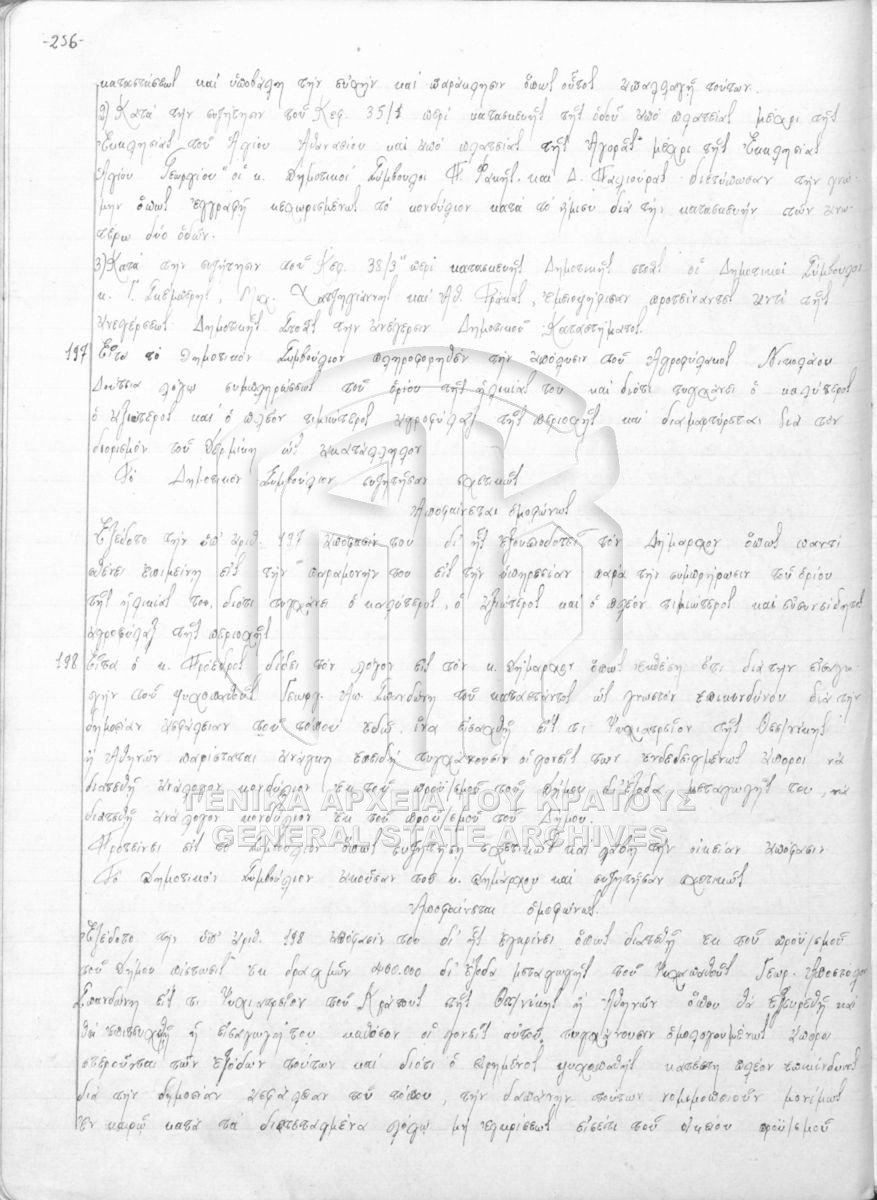 -256-
καταστάσεως καί ὑποβάλη τήν εὐχήν καί παράκλησιν ὅπως οὗτος ἀπαλλαγῆ τούτων.
2) Κατά τήν συζήτησιν τοῦ Κεφ. 35/1 περί κατασκευῆς τῆς ὁδοῦ ἀπό πλατείας μέχρι τῆς
Ἐκκλησίας τοῦ Ἁγίου Ἀθανασίου καί ἀπό πλατείας τῆς Ἀγορᾶς μέχρι τῆς Ἐκκλησίας
Ἁγίου Γεωργίου οἱ κ. Δημοτικοί Σύμβουλοι καί Δ. Παλιούρας διετύπωσαν τήν γνώ-
μην ὅπως ἐγγραφῆ κεχωρισμένως τό κονδύλιον κατά τό ἥμισυ διά τήν κατασκευήν τῶν ἀνω-
τέρω δύο ὁδῶν.
3) Κατά τήν συζήτησιν τοῦ Κεφ. 38/3 περί κατασκευῆς Δημοτικῆς στοᾶς οἱ Δημοτικοί Σύμβουλοι
κ. Γ. Μιχ. Χατζηγιάννης καί Ἀθ. Φράκας ἐμειοψήφισαν προτείναντες ἀντί τῆς
ἀνεγέρσεως Δημοτικῆς Στοᾶς τήν ἀνέγερσιν Δημοτικοῦ Καταστήματος.
197 Εἶτα τό Δημοτικόν Συμβούλιον πληροφορηθέν τήν ἀπόλυσιν τοῦ ἀγροφύλακος Νικολάου
Δούτσια λόγω συμπληρώσεως τοῦ ὁρίου τῆς ἡλικίας του καί διότι τυγχάνει ὁ καλύτερος
ὁ ἀξιώτερος καί ὁ πλέον τιμιώτερος ἀγροφύλαξ τῆς περιοχῆς καί διαμαρτύρεται διά τόν
διορισμόν τοῦ Δερμίκη ὡς ἀκατάλληλον
Τό Δημοτικόν Συμβούλιον συζητῆσαν σχετικῶς
Ἀποφαίνεται ὁμοφώνως
Ἐξέδοτο τήν ὑπ' ἀριθ. 197 ἀπόφασίν του δι' ἧς ἐξουσιοδοτεῖ τόν Δήμαρχον ὅπως παντί
σθένει ἐπιμείνη εἰς τήν παραμονήν του εἰς τήν ὑπηρεσίαν παρά τήν συμπλήρωσιν τοῦ ὁρίου
τῆς ἡλικίας του, διότι τυγχάνει ὁ καλύτερος, ὁ ἀξιώτερος καί ὁ πλέον τιμιώτερος καί εὐσυνείδητος
ἀγροφύλαξ τῆς περιοχῆς
198 Εἶτα ὁ κ. Πρόεδρος δίδει τόν λόγον εἰς τόν κ. Δήμαρχον ὅπως ἐκθέση ὅτι διά τήν εἰσαγω-
γήν τοῦ ψυχοπαθοῦς Γεωργ. Ἀπ. Σπανδώνη τοῦ καταστάντος ὡς γνωστόν ἐπικινδύνου διά τήν
δημοσίαν ἀσφάλειαν τοῦ τόπου ἐδῶ, ἵνα εἰσαχθῆ εἰς τι Ψυχιατρεῖον τῆς Θεσ/νίκης
ἤ Ἀθηνῶν παρίσταται ἀνάγκη ἐπειδή τυγχάνουσιν οἱ γονεῖς των ἐνδεδειγμένως ἄποροι νά
διατεθῆ ἀνάλογον κονδύλιον ἐκ τοῦ προϋ/σμοῦ τοῦ Δήμου δι' ἔξοδα μεταγωγῆς του, νά
διατεθῆ ἀνάλογον κονδύλιον ἐκ τοῦ προϋ/σμοῦ τοῦ Δήμου.
Προτείνει εἰς τό Συμβούλιον ὅπως συζητήση σχετικῶς καί λάβη τήν οἰκείαν ἀπόφασιν
Τό Δημοτικόν Συμβούλιον ἀκοῦσαν τοῦ κ. Δημάρχου καί συζητῆσαν σχετικῶς
Ἀποφαίνεται ὁμοφώνως.
Ἐξέδοτο τήν ὑπ' ἀριθ. 198 ἀπόφασίν του δι' ἧς ἐγκρίνει ὅπως διατεθῆ ἐκ τοῦ προϋ/σμοῦ
τοῦ Δήμου πίστωσις ἐκ δραχμῶν 400.000 δι' ἔξοδα μεταγωγῆς τοῦ Ψυχοπαθοῦς Γεωρ. Ἀποστόλου
Σπανδώνη εἰς τι Ψυχιατρεῖον τοῦ Κράτους τῆς Θεσ/νίκης ἤ Ἀθηνῶν ὅπου θά ἐξευρεθῆ καί
θά ἐπιτευχθῆ ἡ εἰσαγωγή του καθόσον οἱ γονεῖς αὐτοῦ τυγχάνουσιν ὁμολογουμένως ἄποροι
στερούνται τῶν ἐξόδων τούτων καί διότι ὁ εἰρημένος ψυχοπαθής κατέστη πλέον ἐπικίνδυνος
διά τήν δημοσίαν ἀσφάλειαν τοῦ τόπου, τήν δαπάνην τούτων νομιμοποιοῦν μονίμως
ἐν καιρῷ κατά τά διατεταγμένα λόγω μή ἐγκρίσεως εἰσέτι τοῦ οἰκείου προϋ/σμοῦ
ΓΕΝΙΚΑ ΑΡΧΕΙΑ ΤΟΥ ΚΡΑΤΟΥΣ
GENERAL STATE ARCHIVES